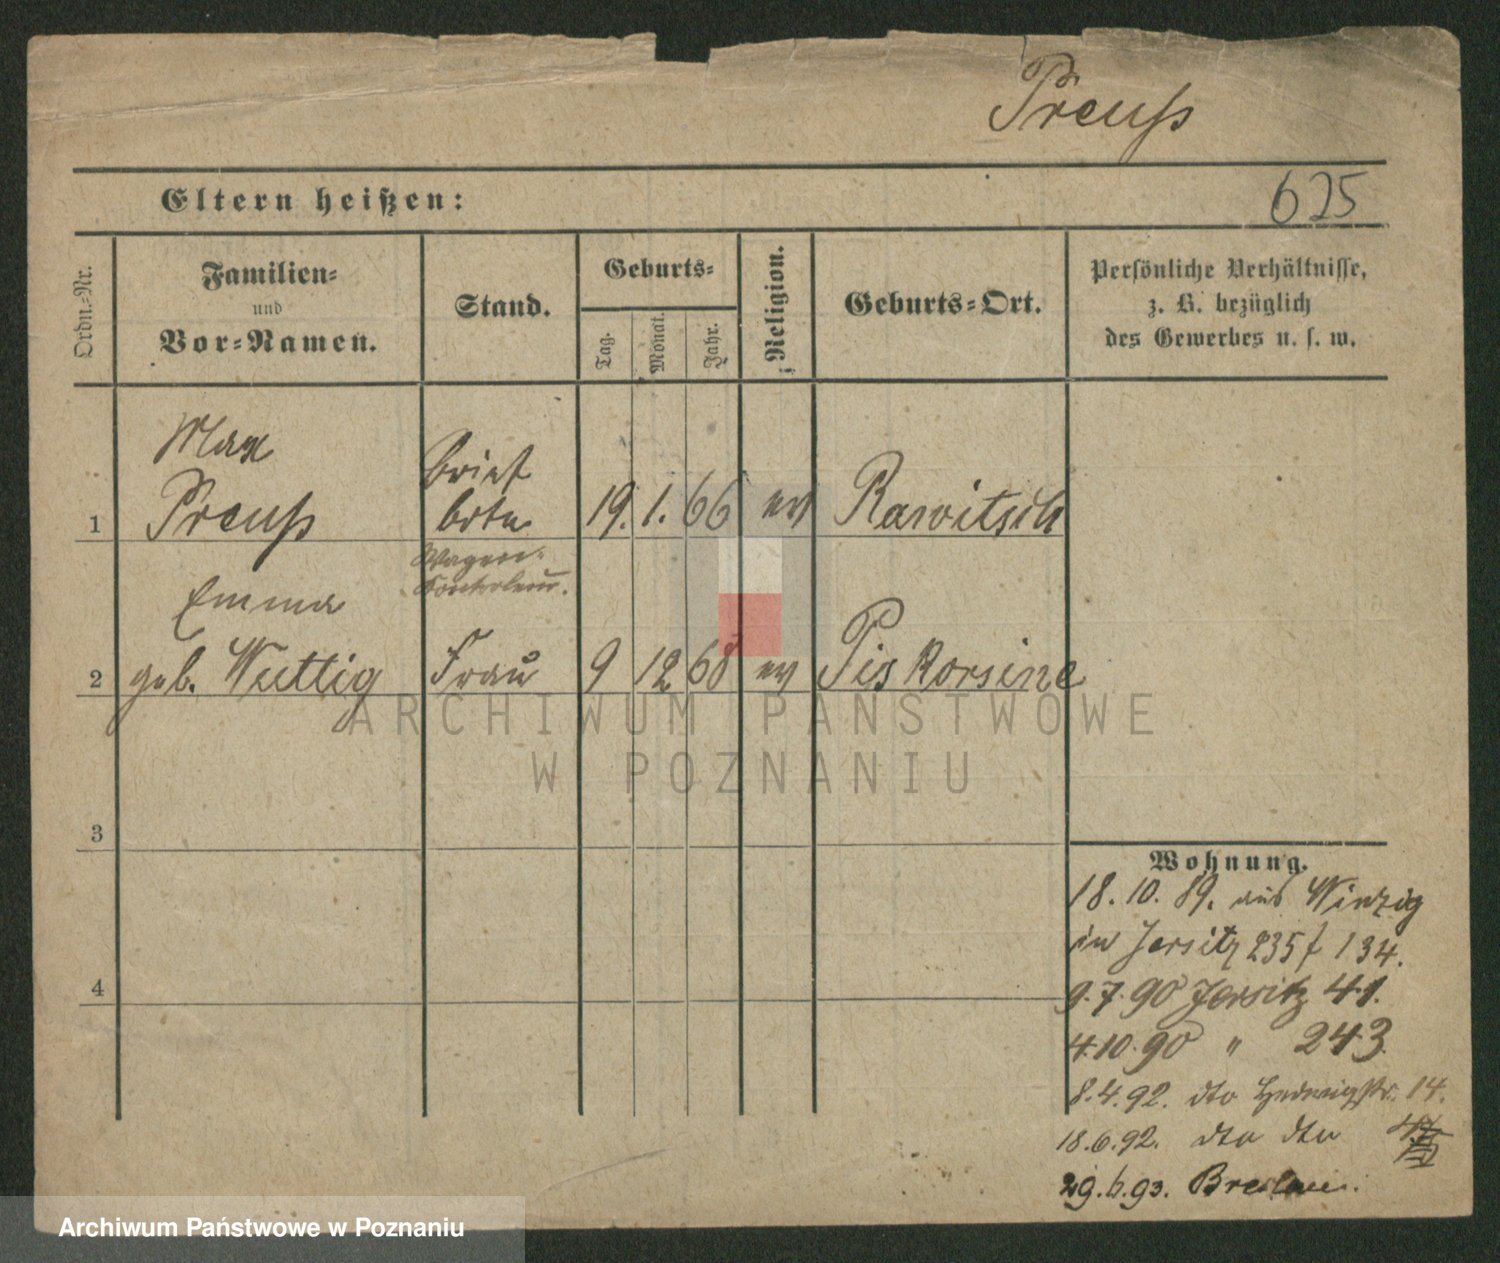 Preuß
Eltern heißen:
625
Ordn.-Nr.
Familien-
und
Vor-Namen.
Stand.
Geburts-
Tag.
Monat.
Jahr.
Religion.
Geburts-Ort.
Persönliche Verhältnisse,
z. B. bezüglich
des Gewerbes u. s. w.
Max
Brief
1 Preuß bote 19. 1. 66 ev Rawitsch
Wagen-
Emma
2 geb. Wuttig Frau 9 12 68 ev Piskorsine
ARCHIWUM PAŃSTWOWE
W POZNANIU
3
4
Wohnung.
18. 10. 89. aus Winzig
in Jersitz 235 f 134.
9.7.90 Jersitz 41.
4.10.90 " 243.
8.4.92. dto Hedwigstr. 14.
18.6.92. dto dto
29.6.93. Breslau.
Archiwum Państwowe w Poznaniu